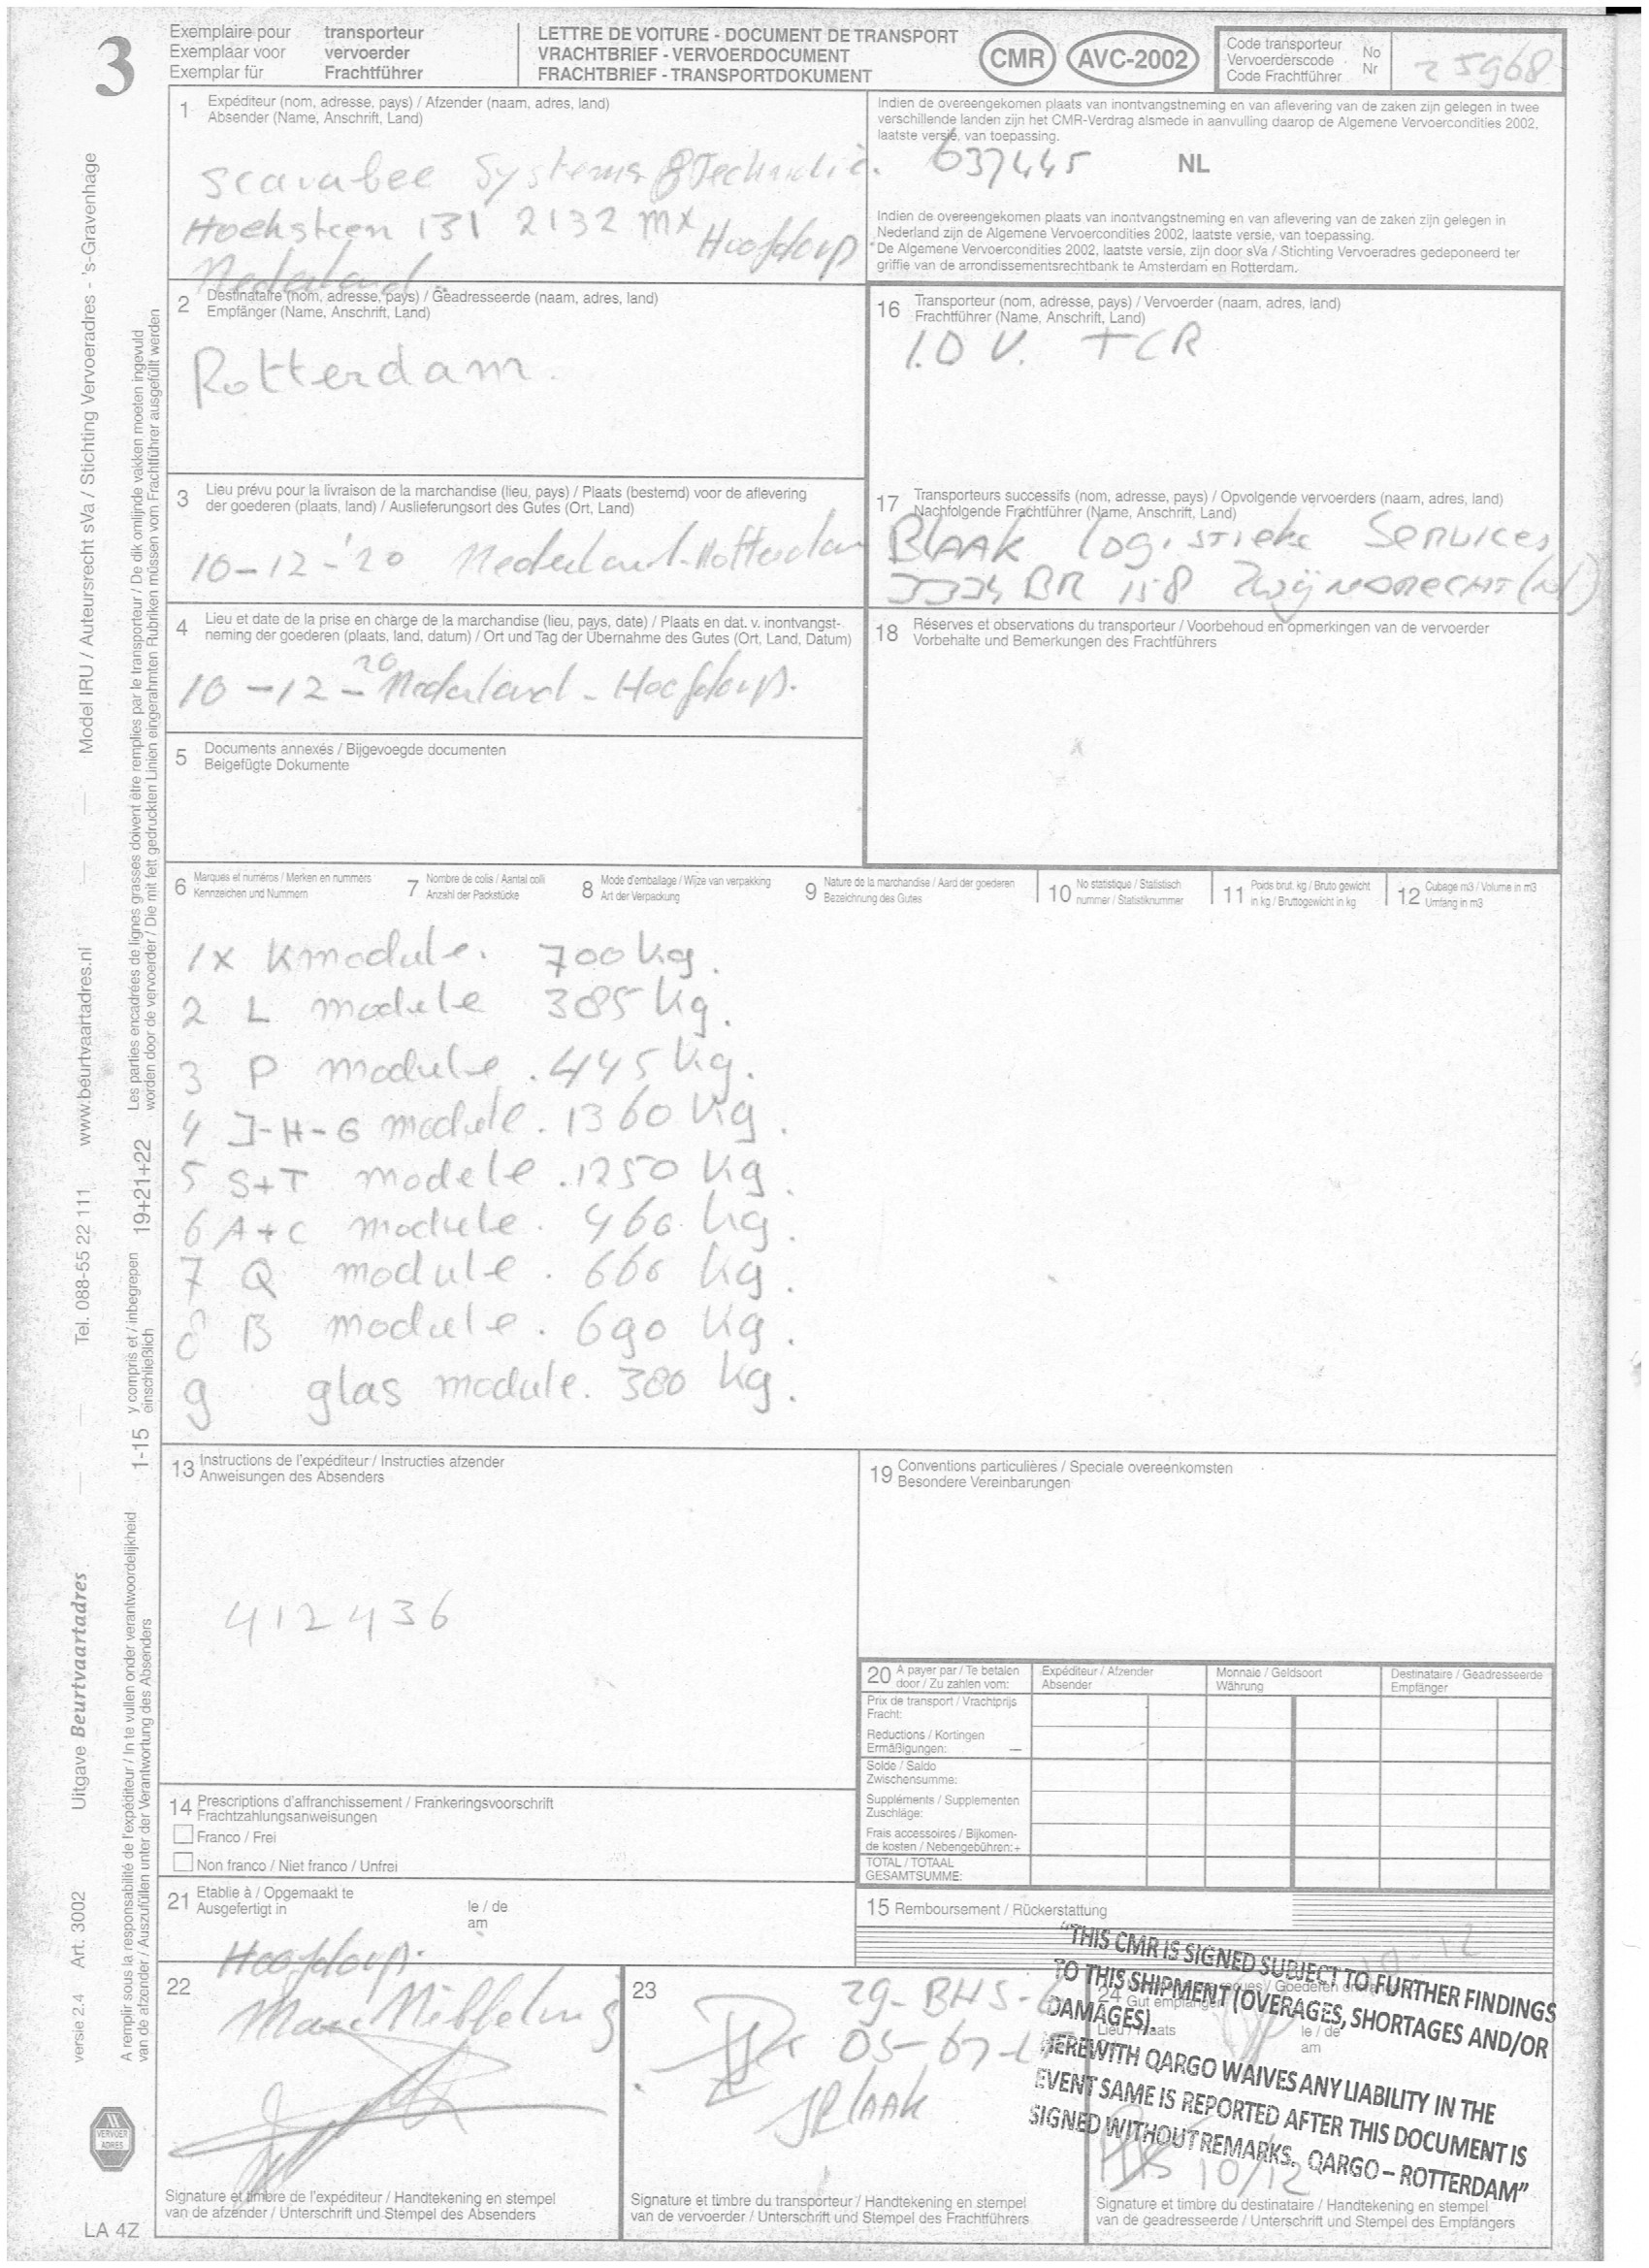 3
Exemplaire pour transporteur
Exemplaar voor vervoerder
Exemplar für Frachtführer
LETTRE DE VOITURE - DOCUMENT DE TRANSPORT
VRACHTBRIEF - VERVOERDOCUMENT
FRACHTBRIEF - TRANSPORTDOKUMENT
CMR
AVC-2002
Code transporteur
Vervoerderscode
Code Frachtführer
No
Nr
25968
1 Expéditeur (nom, adresse, pays) / Afzender (naam, adres, land)
Absender (Name, Anschrift, Land)
Scarabee Systems &
Hoeksteen 131 2132 MX Hoofdorp
Nederland
Indien de overeengekomen plaats van inontvangstneming en van aflevering van de zaken zijn gelegen in twee
verschillende landen zijn het CMR-Verdrag alsmede in aanvulling daarop de Algemene Vervoercondities 2002,
laatste versie, van toepassing.
637445
NL
Indien de overeengekomen plaats van inontvangstneming en van aflevering van de zaken zijn gelegen in
Nederland zijn de Algemene Vervoercondities 2002, laatste versie, van toepassing.
*De Algemene Vervoercondities 2002, laatste versie, zijn door sVa / Stichting Vervoeradres gedeponeerd ter
griffie van de arrondissementsrechtbank te Amsterdam en Rotterdam.
2 Destinataire (nom, adresse, pays) / Geadresseerde (naam, adres, land)
Empfänger (Name, Anschrift, Land)
Rotterdam.
16 Transporteur (nom, adresse, pays) / Vervoerder (naam, adres, land)
Frachtführer (Name, Anschrift, Land)
I.O V. TCR
3 Lieu prévu pour la livraison de la marchandise (lieu, pays) / Plaats (bestemd) voor de aflevering
der goederen (plaats, land) / Auslieferungsort des Gutes (Ort, Land)
10-12-'20 Nederland-Rotterdam
17 Transporteurs successifs (nom, adresse, pays) / Opvolgende vervoerders (naam, adres, land)
Nachfolgende Frachtführer (Name, Anschrift, Land)
BLAAK logistieke Services
BR 158 Zwijndrecht (NL)
4 Lieu et date de la prise en charge de la marchandise (lieu, pays, date) / Plaats en dat. v. inontvangst-
neming der goederen (plaats, land, datum) / Ort und Tag der Übernahme des Gutes (Ort, Land, Datum)
10-12-20 Nederland - Hoofdorp.
18 Réserves et observations du transporteur / Voorbehoud en opmerkingen van de vervoerder
Vorbehalte und Bemerkungen des Frachtführers
5 Documents annexés / Bijgevoegde documenten
Beigefügte Dokumente
6 Marques et numéros / Merken en nummers
Kennzeichen und Nummern
7 Nombre de colis / Aantal colli
Anzahl der Packstücke
8 Mode d'emballage / Wijze van verpakking
Art der Verpackung
9 Nature de la marchandise / Aard der goederen
Bezeichnung des Gutes
10 No statistique / Statistisch
nummer / Statistiknummer
11 Poids brut. kg / Bruto gewicht
in kg / Bruttogewicht in kg
12 Cubage m3 / Volume in m3
Umfang in m3
1x K module. 700 kg.
2 L module 385 kg.
3 P module. 445 kg.
4 J-H-G module. 1360 kg.
5 S+T modele. 1250 kg.
6 A+C module. 460 kg.
7 Q module. 660 kg.
8 B module. 690 kg.
9 glas module. 380 kg.
13 Instructions de l'expéditeur / Instructies afzender
Anweisungen des Absenders
412436
19 Conventions particulières / Speciale overeenkomsten
Besondere Vereinbarungen
20 A payer par / Te betalen
door / Zu zahlen vom:
Expéditeur / Afzender
Absender
Monnaie / Geldsoort
Währung
Destinataire / Geadresseerde
Empfänger
Prix de transport / Vrachtprijs
Fracht:
Reductions / Kortingen
Ermäßigungen: —
Solde / Saldo
Zwischensumme:
Suppléments / Supplementen
Zuschläge:
Frais accessoires / Bijkomen-
de kosten / Nebengebühren: +
TOTAL / TOTAAL
GESAMTSUMME:
14 Prescriptions d'affranchissement / Frankeringsvoorschrift
Frachtzahlungsanweisungen
Franco / Frei
Non franco / Niet franco / Unfrei
21 Etablie à / Opgemaakt te
Ausgefertigt in
le / de
am
Hoofdorp.
15 Remboursement / Rückerstattung
10-12
22
23
29-BHS-
05-67-
BLAAK
24 Gut empfangen
Goederen
Lieu / Plaats
le / de
am
"THIS CMR IS SIGNED SUBJECT TO FURTHER FINDINGS
TO THIS SHIPMENT (OVERAGES, SHORTAGES AND/OR
DAMAGES).
HEREWITH QARGO WAIVES ANY LIABILITY IN THE
EVENT SAME IS REPORTED AFTER THIS DOCUMENT IS
SIGNED WITHOUT REMARKS. QARGO – ROTTERDAM"
10/12
Signature et timbre de l'expéditeur / Handtekening en stempel
van de afzender / Unterschrift und Stempel des Absenders
Signature et timbre du transporteur / Handtekening en stempel
van de vervoerder / Unterschrift und Stempel des Frachtführers
Signature et timbre du destinataire / Handtekening en stempel
van de geadresseerde / Unterschrift und Stempel des Empfängers
LA 4Z
VERVOER
ADRES
versie 2.4 Art. 3002 Uitgave Beurtvaartadres Tel. 088-55 22 111 www.beurtvaartadres.nl Model IRU / Auteursrecht sVa / Stichting Vervoeradres - 's-Gravenhage
A remplir sous la responsabilité de l'expéditeur / In te vullen onder verantwoordelijkheid
van de afzender / Auszufüllen unter der Verantwortung des Absenders
1-15 y compris et / inbegrepen
einschließlich
19+21+22
Les parties encadrées de lignes grasses doivent être remplies par le transporteur / De dik omlijnde vakken moeten ingevuld
worden door de vervoerder / Die mit fett gedruckten Linien eingerahmten Rubriken müssen vom Frachtführer ausgefüllt werden